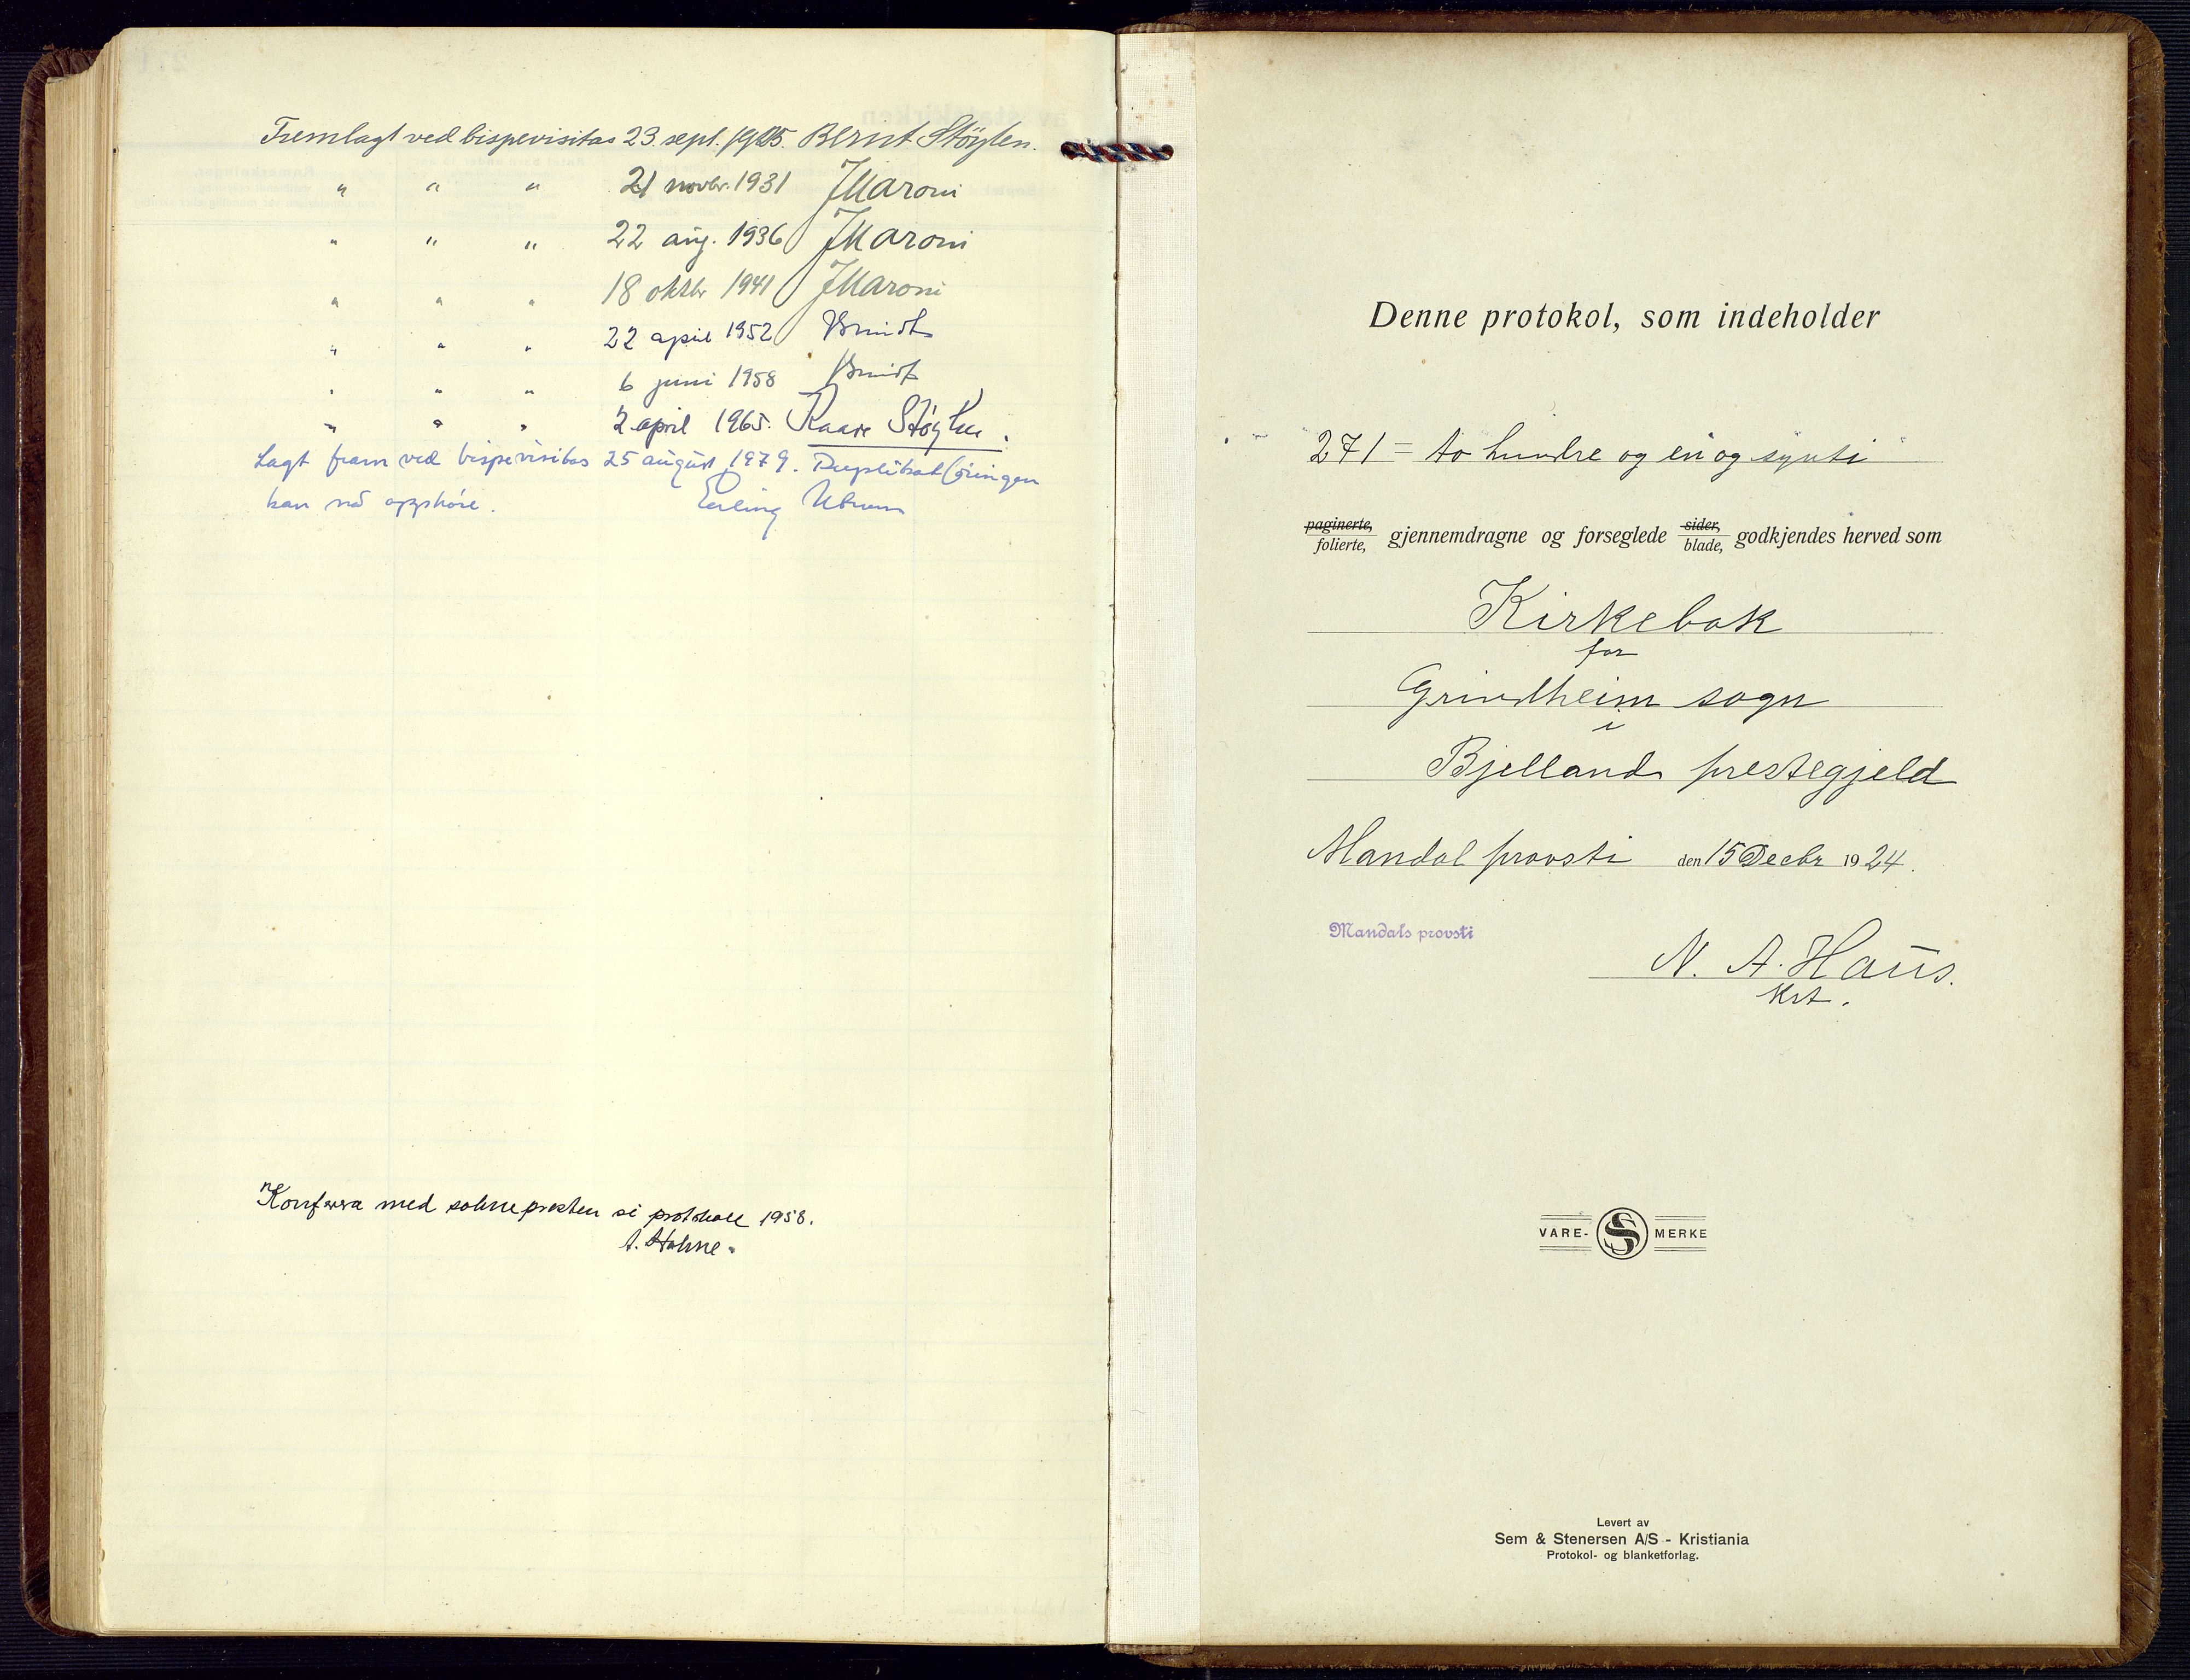 Fremlagt ved bispevisitas 23. sept. 1925. Bernt Støylen.
" " " 21 novbr. 1931 JMaroni
" " " 22 aug. 1936 JMaroni
" " " 18 oktbr 1941 JMaroni
" " " 22 april 1952 Smidt
" " " 6 juni 1958 Smidt
" " " 2 april 1965. Kaare Støylen.
Lagt fram ved bispevisitas 25 august 1979. Duplikatføringen
kan nå opphøre. Erling Utnem
Konferera med soknepresten si protokoll 1958.
Denne protokol, som indeholder
271 = to hundre og en og sytti
paginerte, folierte, gjennemdragne og forseglede sider, blade, godkjendes herved som
Kirkebok
for
Grindheim sogn
i
Bjelland prestegjeld
Mandal provsti den 15 Decbr 1924.
Mandals provsti
N. A. Haus.
kst.
VARE- S MERKE
Levert av
Sem & Stenersen A/S - Kristiania
Protokol- og blanketforlag.